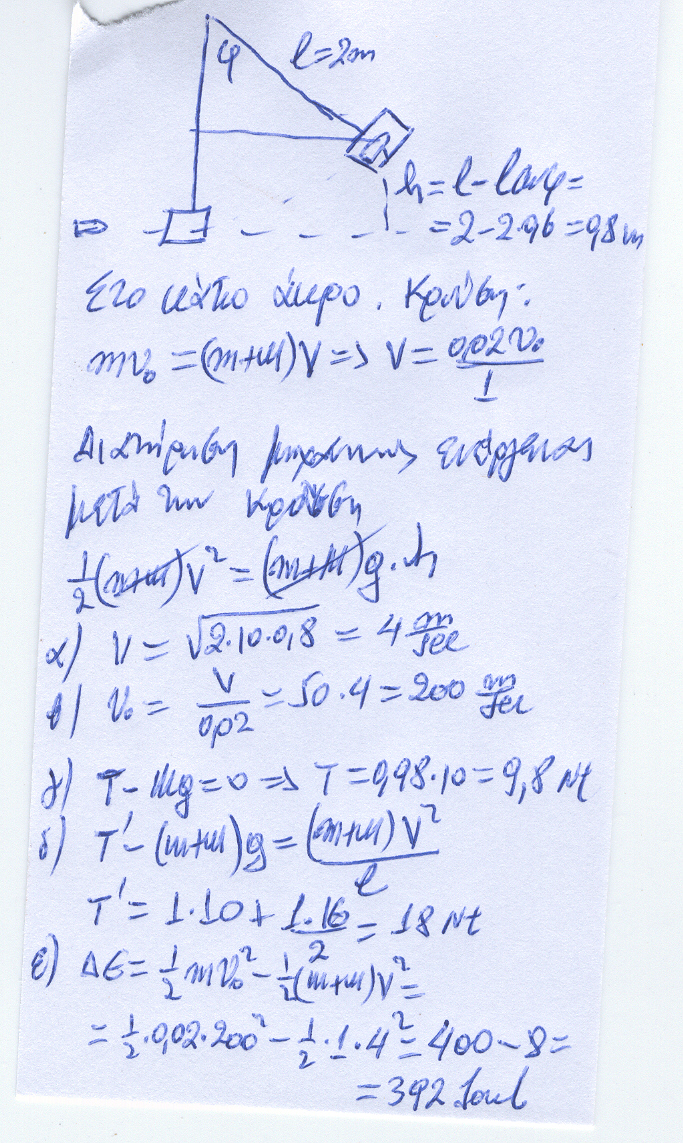 φ l=2m
h = l - lσυνφ =
= 2 - 2·0,6 = 0,8 m
Στο κάτω άκρο. Κρούση:
mv₀ = (m+M)V => V = 0,02v₀/1
Διατήρηση μηχανικής ενέργειας
μετά την κρούση
½(m+M)V² = (m+M)g·h
α) V = √2·10·0,8 = 4 m/sec
β) V₀ = V/0,02 = 50·4 = 200 m/sec
γ) T - Mg = 0 => T = 0,98·10 = 9,8 Nt
δ) T' - (m+M)g = (m+M)V²/l
T' = 1·10 + 1·16/2 = 18 Nt
ε) ΔE = ½mv₀² - ½(m+M)V² =
= ½·0,02·200² - ½·1·4² = 400 - 8 =
= 392 Joul